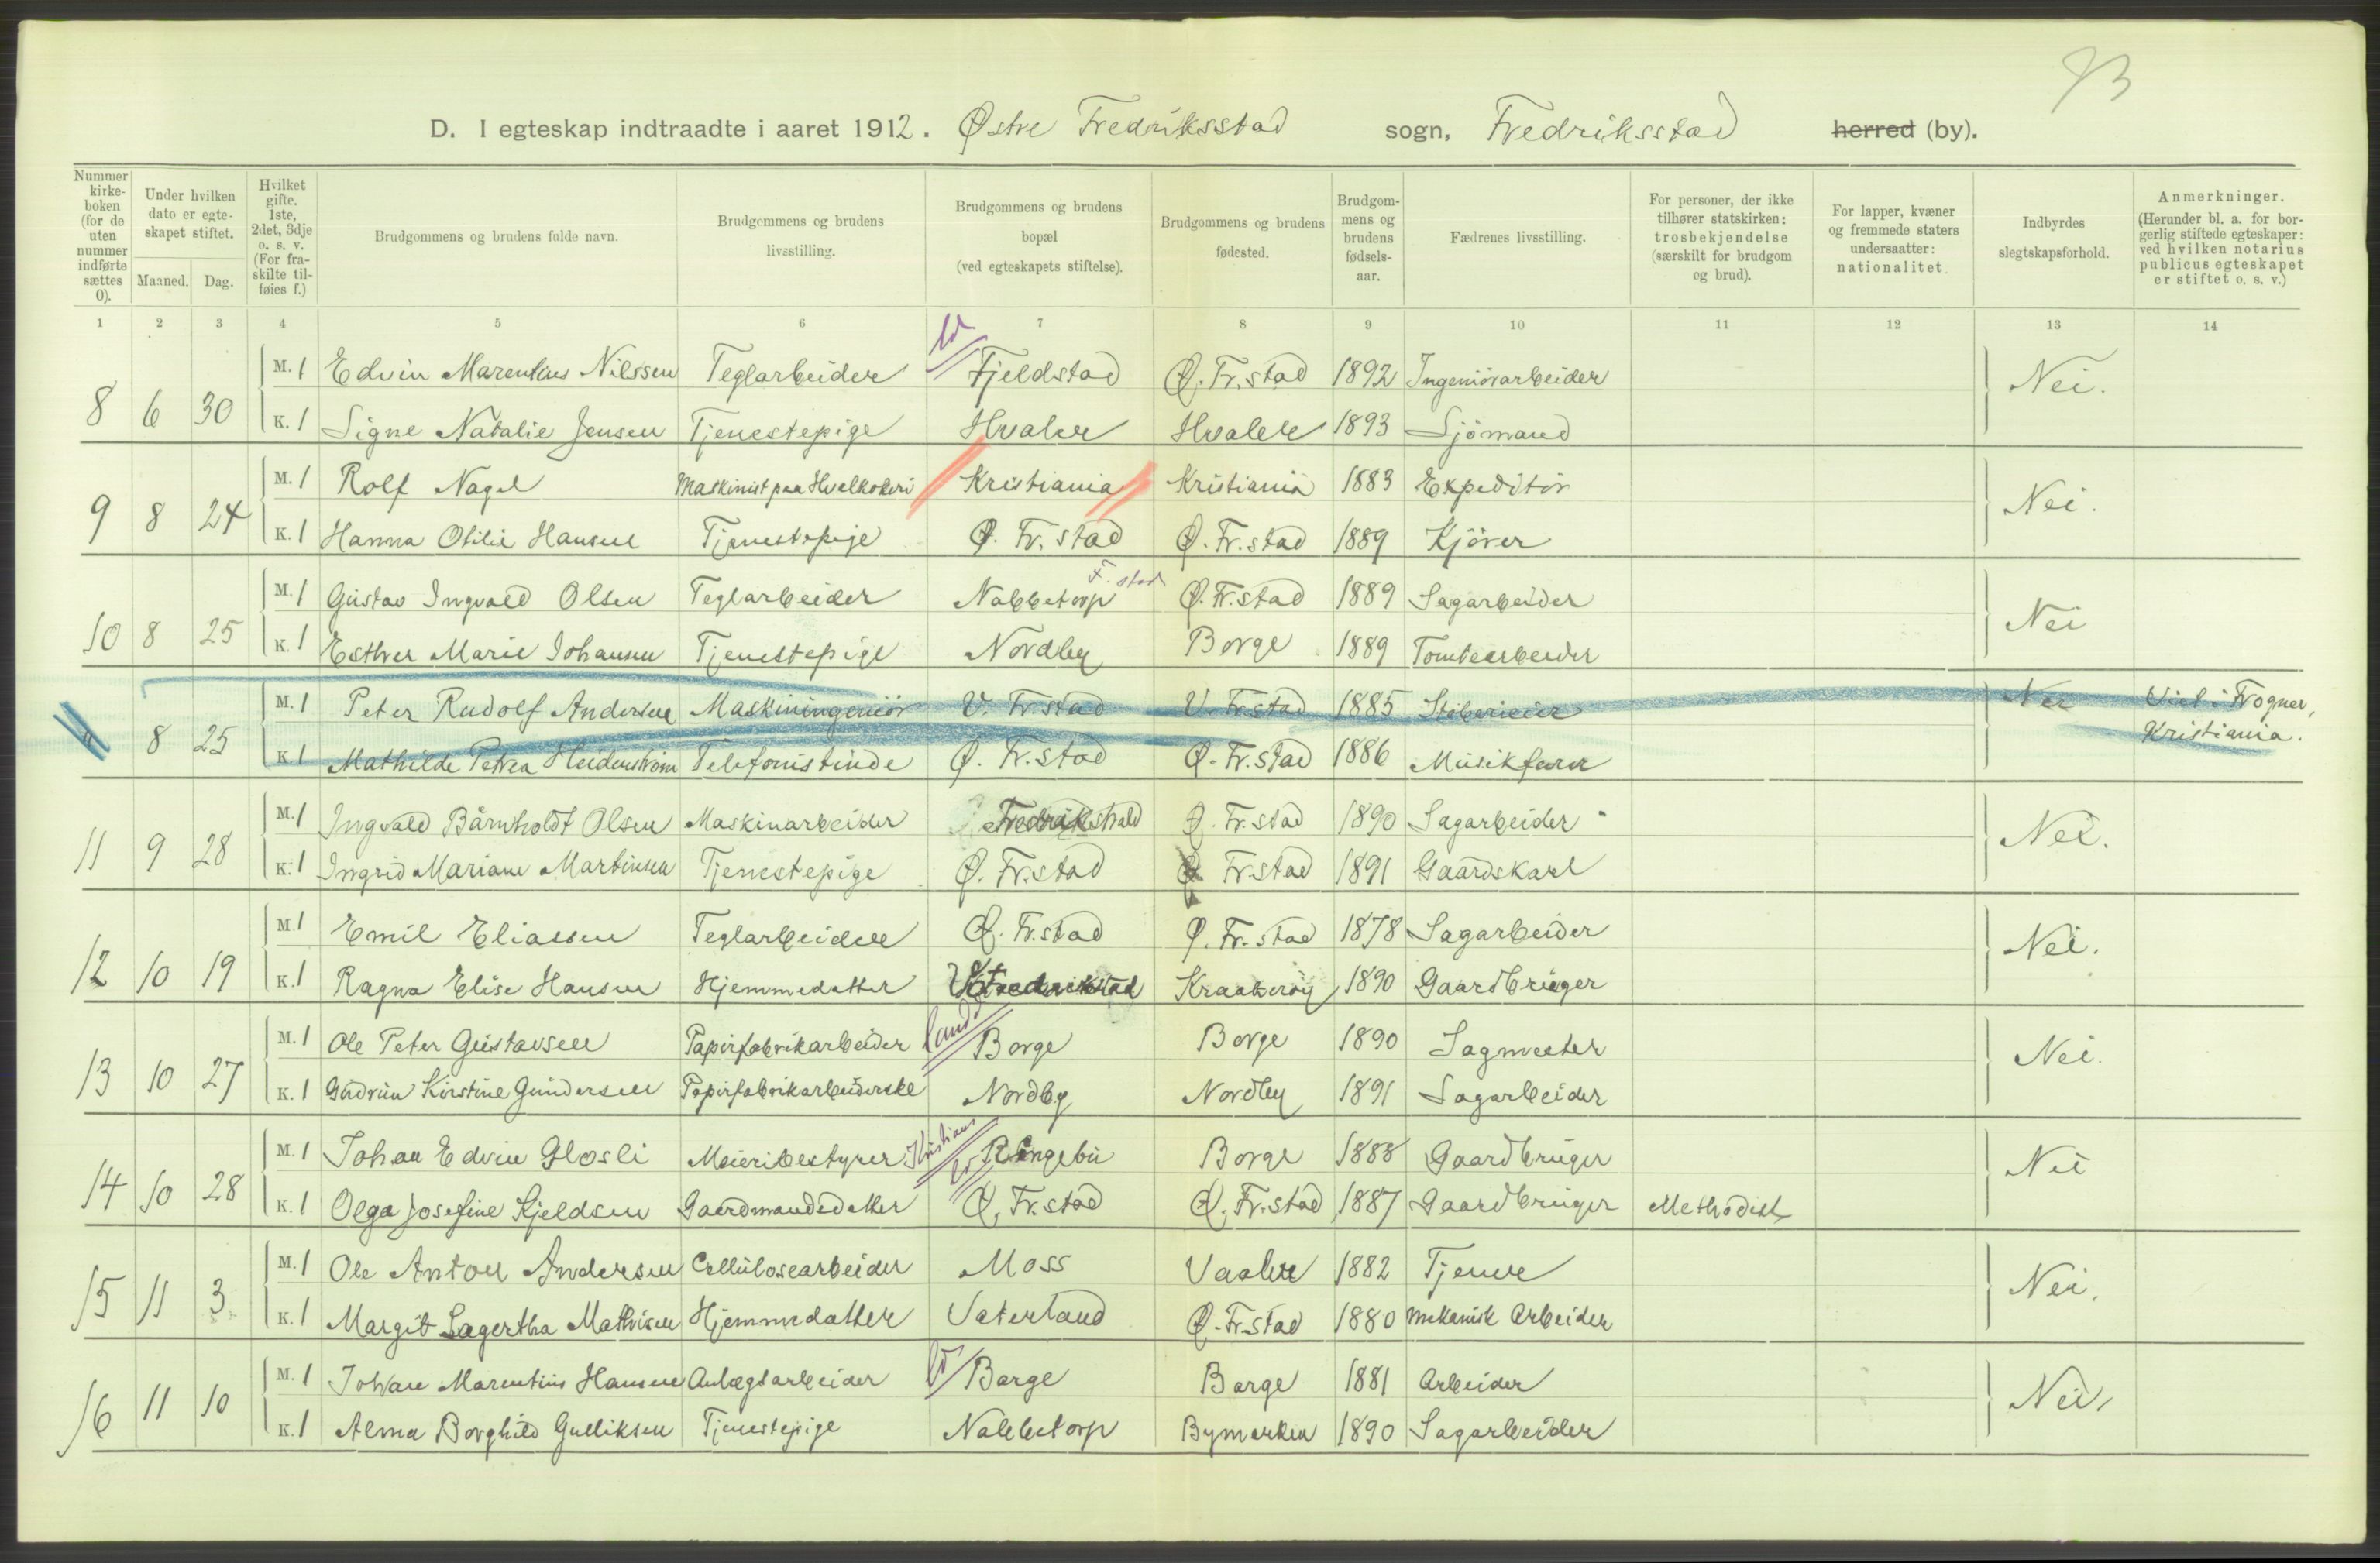 93
D. I egteskap indtraadte i aaret 1912. Østre Fredriksstad sogn, Fredriksstad herred (by).
Nummer i kirkeboken (for de uten nummer indførte sættes 0). | Under hvilken dato er egteskapet stiftet. Maaned. Dag. | Hvilket gifte. 1ste, 2det, 3dje o. s. v. (For fraskilte tilføies f.) | Brudgommens og brudens fulde navn. | Brudgommens og brudens livsstilling. | Brudgommens og brudens bopæl (ved egteskapets stiftelse). | Brudgommens og brudens fødested. | Brudgommens og brudens fødselsaar. | Fædrenes livsstilling. | For personer, der ikke tilhører statskirken: trosbekjendelse (særskilt for brudgom og brud). | For lapper, kvæner og fremmede staters undersaatter: nationalitet. | Indbyrdes slegtskapsforhold. | Anmerkninger. (Herunder bl. a. for borgerlig stiftede egteskaper: ved hvilken notarius publicus egteskapet er stiftet o. s. v.)
1 2 3 4 5 6 7 8 9 10 11 12 13 14
8 6 30 M. 1 Edvin Marentius Nilssen Teglarbeider Fjeldstad Ø. Fr.stad 1892 Ingeniörarbeider Nei.
K. 1 Signe Natalie Jensen Tjenestepige Hvaler Hvaler 1893 Sjömand
9 8 24 M. 1 Rolf Nagel Maskinist paa Hvalkokeri Kristiania Kristiania 1883 Expeditör Nei.
K. 1 Hanna Otilie Hansen Tjenestepige Ø. Fr.stad Ø. Fr.stad 1889 Kjörer
F.stad
10 8 25 M. 1 Gustav Ingvald Olsen Teglarbeider Nabbetorp Ø. Fr.stad 1889 Sagarbeider Nei
K. 1 Esther Marie Johansen Tjenestepige Nordby Borge 1889 Tomtearbeider
" 8 25 M. 1 Peter Rudolf Andersen Maskiningeniör V. Fr.stad V. Fr.stad 1885 Nei Viet i Frogner,
K. 1 Mathilde Petrea Heidenström Telefonistinde Ø. Fr.stad Ø. Fr.stad 1886 Musikfører Kristiania.
11 9 28 M. 1 Ingvald Bärnholdt Olsen Maskinarbeider Fredrikshald Ø. Fr.stad 1890 Sagarbeider Nei.
K. 1 Ingrid Mariane Martinsen Tjenestepige Ø. Fr.stad Ø Fr.stad 1891 Gaardskarl
12 10 19 M. 1 Emil Eliassen Teglarbeider Ø. Fr.stad Ø. Fr.stad 1878 Sagarbeider Nei.
K. 1 Ragna Elise Hansen Hjemmedatter Fredrikstad Kraakeröy 1890 Gaardbruger
13 10 27 M. 1 Ole Peter Gustavsen Papirfabrikarbeider Borge Borge 1890 Sagmester Nei.
K. 1 Gudrun Kirstine Gundersen Papirfabrikarbeiderske Nordby Nordby 1891 Sagarbeider
14 10 28 M. 1 Johan Edvin Glosli Meieribestyrer Kristians Ringebu Borge 1888 Gaardbruger Nei
K. 1 Olga Josefine Kjeldsen Gaardmandsdatter Ø. Fr.stad Ø. Fr.stad 1887 Gaardbruger Methodist
15 11 3 M. 1 Ole Anton Andersen Cellulosearbeider Moss Vaaler 1882 Tjener Nei.
K. 1 Margit Lagertha Mathisen Hjemmedatter Vaterland Ø. Fr.stad 1880 Mekanisk Arbeider
16 11 10 M. 1 Johan Marentius Hansen Anlægsarbeider Borge Borge 1881 Arbeider Nei,
K. 1 Alma Borghild Gulliksen Tjenestepige Nabbetorp Bymarken 1890 Sagarbeider